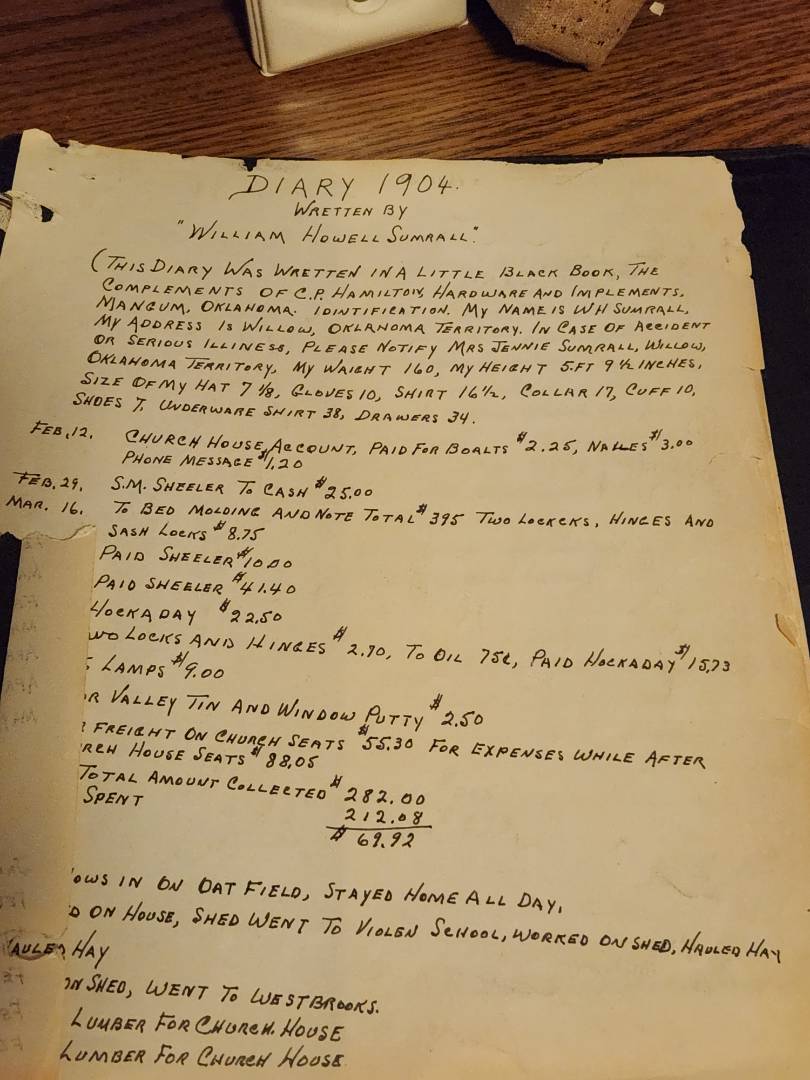 DIARY 1904.
WRETTEN BY
"WILLIAM HOWELL SUMRALL".
(THIS DIARY WAS WRETTEN IN A LITTLE BLACK BOOK, THE
COMPLEMENTS OF C.P. HAMILTON, HARDWARE AND IMPLEMENTS,
MANGUM, OKLAHOMA. IDINTIFICATION. MY NAME IS WH SUMRALL,
MY ADDRESS IS WILLOW, OKLAHOMA TERRITORY. IN CASE OF ACCIDENT
OR SERIOUS ILLINESS, PLEASE NOTIFY MRS JENNIE SUMRALL, WILLOW,
OKLAHOMA TERRITORY, MY WAIGHT 160, MY HEIGHT 5.FT 9 1/2 INCHES,
SIZE OF MY HAT 7 1/8, GLOVES 10, SHIRT 16 1/2, COLLAR 17, CUFF 10,
SHOES 7, UNDERWARE SHIRT 38, DRAWERS 34.
FEB, 12. CHURCH HOUSE, ACCOUNT, PAID FOR BOALTS $2.25, NALLES $3.00
PHONE MESSAGE $1,20
FEB. 29. S.M. SHEELER TO CASH $25.00
MAR. 16. TO BED MOLDING AND NOTE TOTAL $395 TWO LOCKCKS, HINGES AND
SASH LOCKS $8.75
PAID SHEELER $10.00
PAID SHEELER $41.40
HOCKADAY $22,50
WO LOCKS AND HINGES $2.70, TO OIL 75¢, PAID HOCKADAY $15,73
LAMPS $9.00
R VALLEY TIN AND WINDOW PUTTY $2.50
FREIGHT ON CHURCH SEATS $55.30 FOR EXPENSES WHILE AFTER
RCH HOUSE SEATS $88,05
TOTAL AMOUNT COLLECTED $282.00
SPENT 212.08
$69.92
OWS IN ON OAT FIELD, STAYED HOME ALL DAY,
D ON HOUSE, SHED WENT TO VIOLEN SCHOOL, WORKED ON SHED, HAULED HAY
HAULED HAY
ON SHED, WENT TO WESTBROOKS.
LUMBER FOR CHURCH. HOUSE
LUMBER FOR CHURCH HOUSE